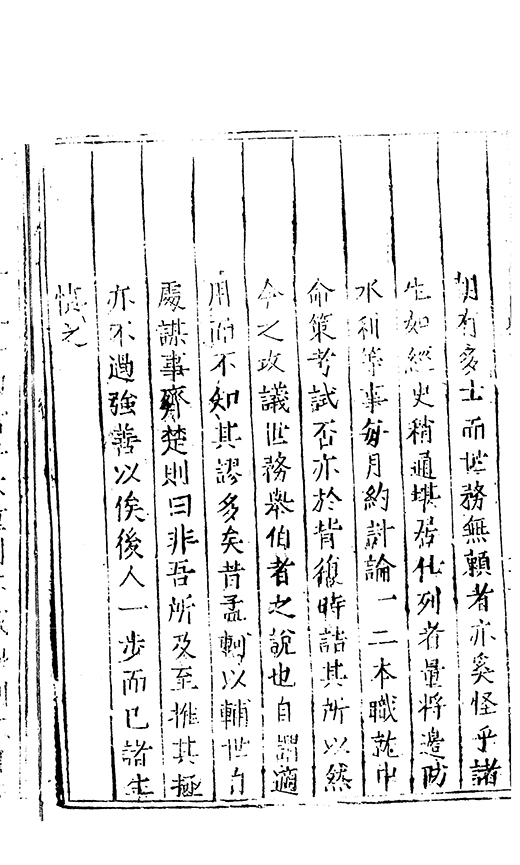 朝有多士而世務無賴者亦奚怪乎諸
生如經史稍通堪居仕列者量將邊防
水利等事每月約討論一二本職就中
命策考試否亦於背復時詰其所以然
今之政議世務舉伯者之說也自謂適
用而不知其謬多矣昔孟軻以輔世自
處謀事齊楚則曰非吾所及至推其極
亦不過強善以俟後人一步而已諸生
慎之